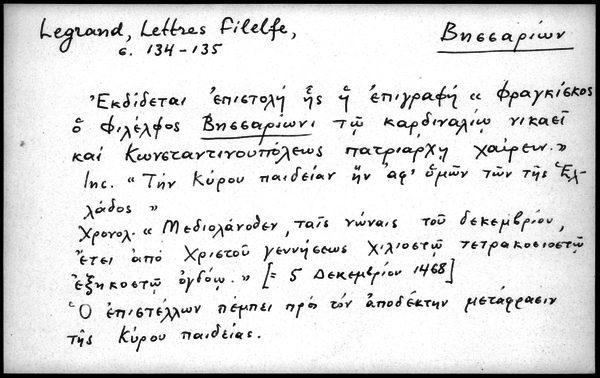 Legrand, Lettres Filelfe,
σ. 134-135
Βησσαρίων
Ἐκδίδεται ἐπιστολή ἧς ἡ ἐπιγραφή « Φραγκίσκος
ὁ Φιλέλφος Βησσαρίωνι τῷ καρδιναλίῳ νικαεῖ
καί Κωνσταντινουπόλεως πατριάρχῃ χαίρειν.»
Inc. “ Τήν Κύρου παιδείαν ἥν ἀφ' ὑμῶν τῶν τῆς Ἑλ-
λάδος ”
Χρονολ. “ Μεδιολάνοθεν, ταῖς νώναις τοῦ δεκεμβρίου,
ἔτει ἀπό Χριστοῦ γεννήσεως χιλιοστῷ τετρακοσιοστῷ
ἑξηκοστῷ ὀγδόῳ. ” [= 5 Δεκεμβρίου 1468]
Ὁ ἐπιστέλλων πέμπει πρό τόν ἀποδέκτην μετάφρασιν
τῆς Κύρου παιδείας.